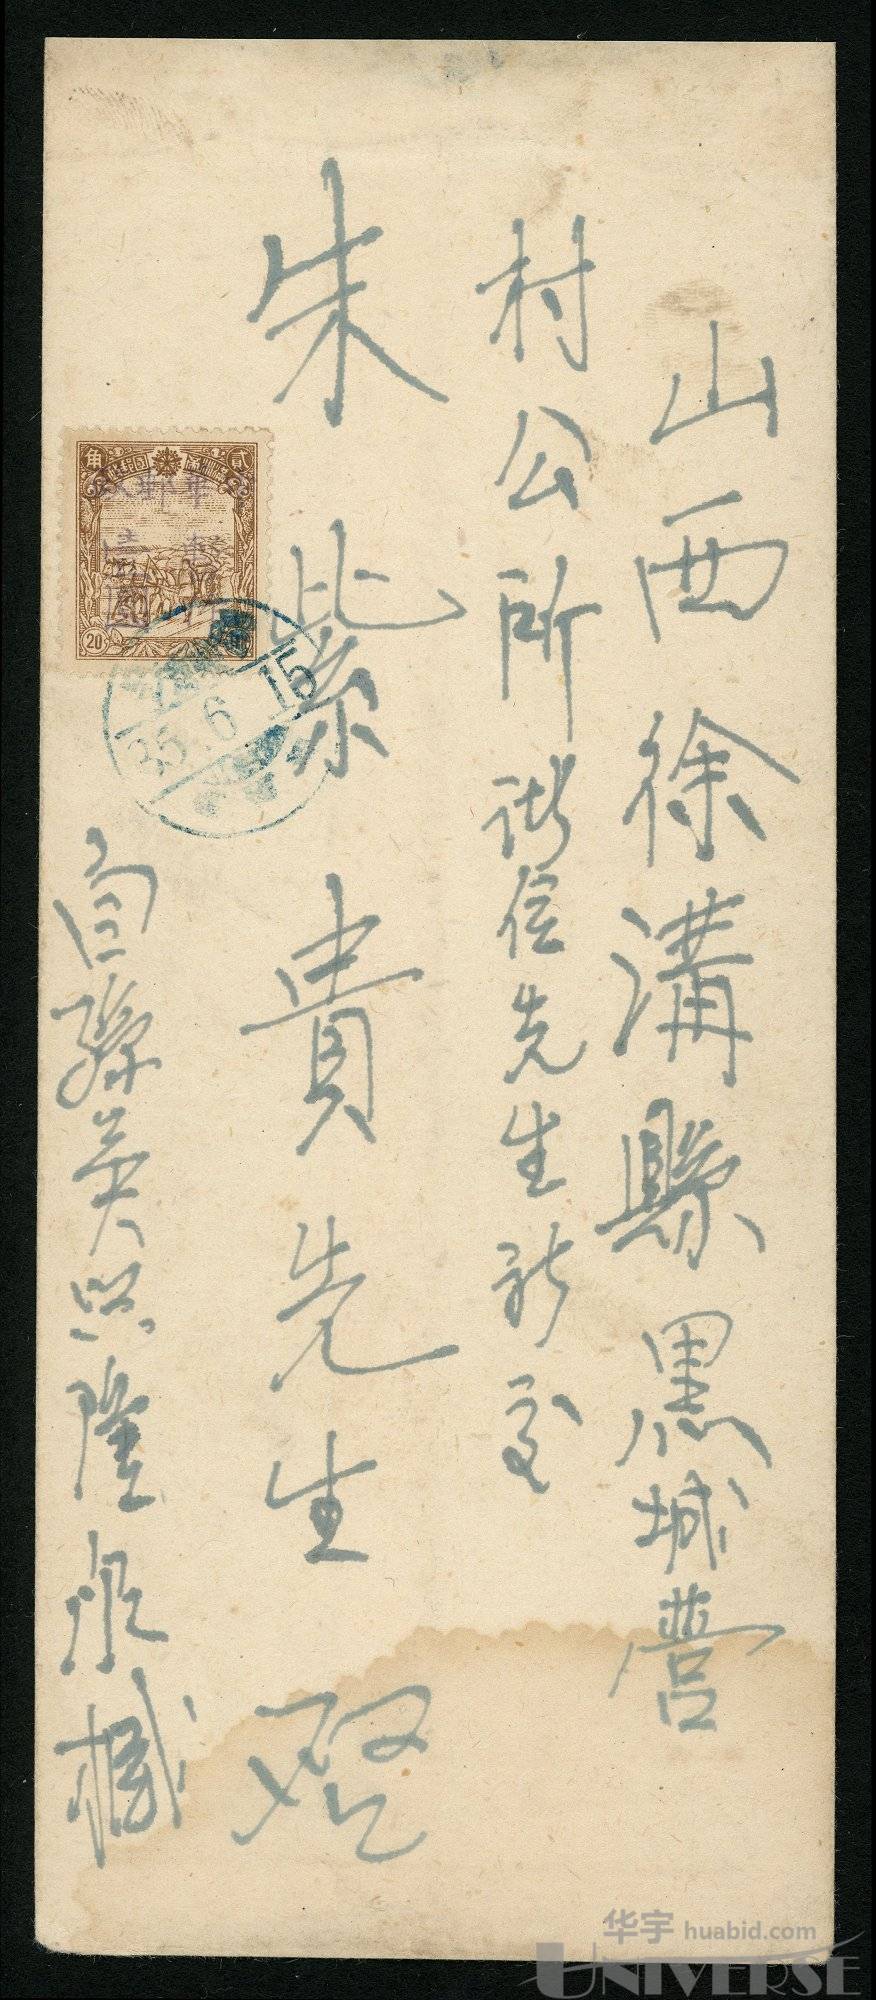 山西徐溝縣黑城營
村公所諧信先生祈交
朱紫貴先生 啓
自孫英照隆泉椷
貳 角
20
35.6.15
华宇 huabid.com
UNIVERSE